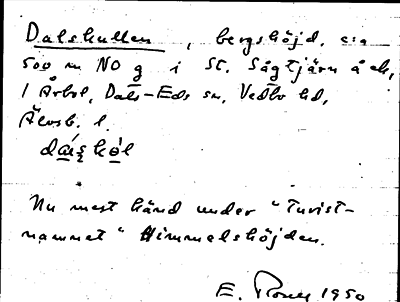 Dalskullen, bergshöjd, c:a
500 m NO g i St. Sågtjärn å ek,
1 Årbol, Dals-Eds sn, Vedbo hd,
Älvsb. l.
Nu mest känd under "turist-
namnet" Himmelshöjden.
E. 1950